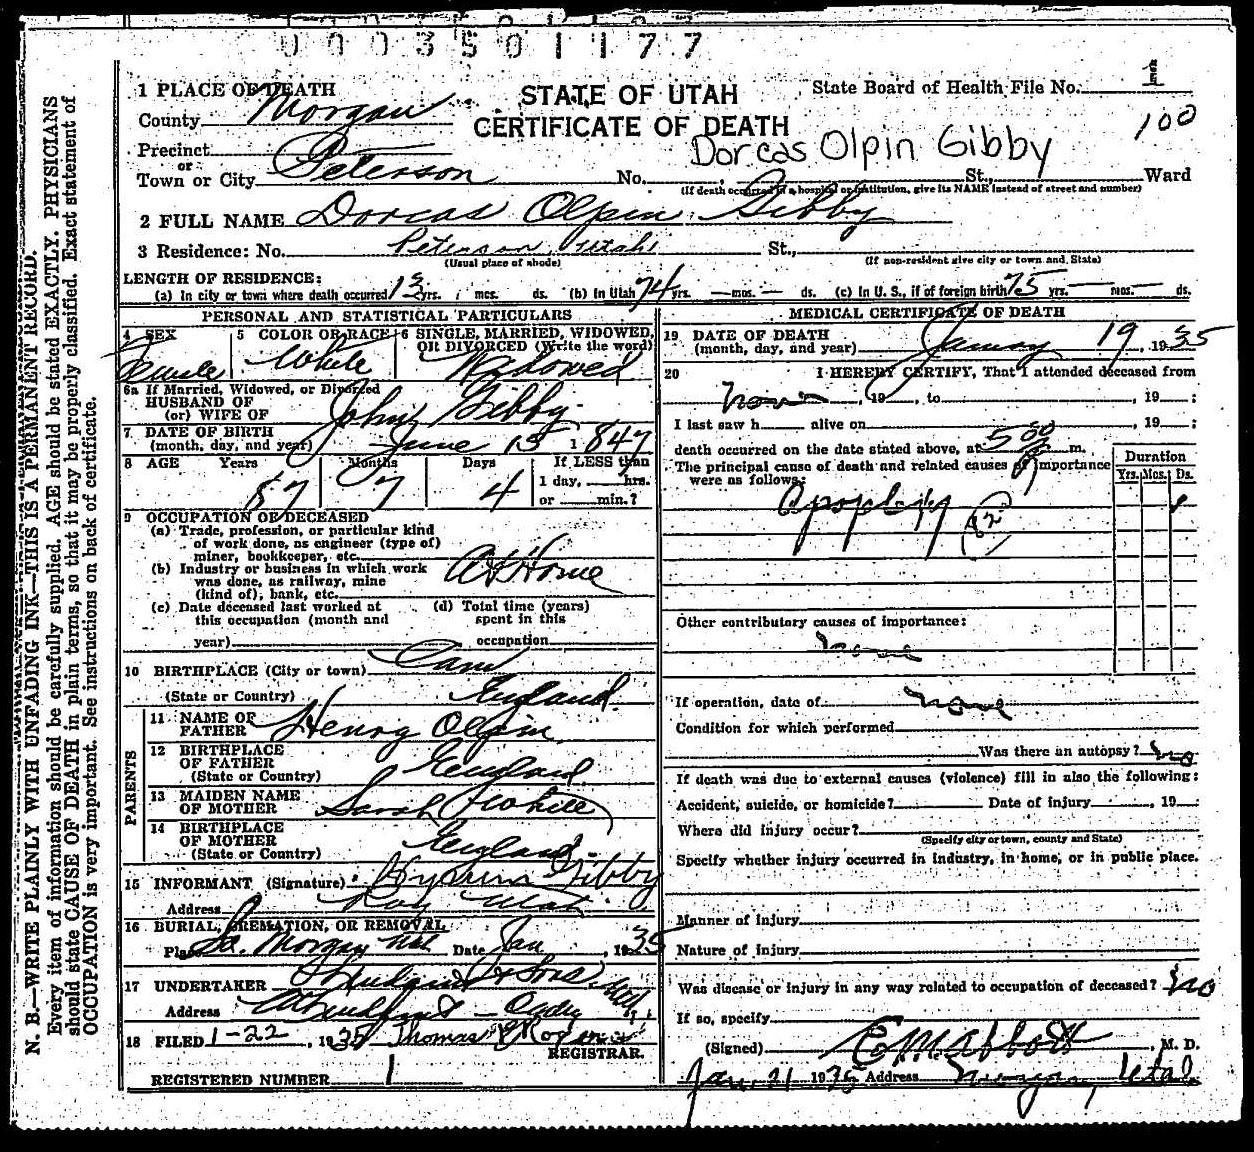 0003501177
1 PLACE OF DEATH
STATE OF UTAH
State Board of Health File No. 1
County Morgan
CERTIFICATE OF DEATH
100
Precinct
Dorcas Olpin Gibby
or
Town or City Peterson No. , St., Ward
(If death occurred in a hospital or institution, give its NAME instead of street and number)
2 FULL NAME Dorcas Olpin Gibby
3 Residence: No. Peterson Utah St.,
(Usual place of abode) (If non-resident give city or town and State)
LENGTH OF RESIDENCE:
(a) In city or town where death occurred 13 yrs. mos. ds. (b) In Utah 74 yrs. — mos. — ds. (c) In U. S., if of foreign birth 75 yrs. — mos. — ds.
PERSONAL AND STATISTICAL PARTICULARS
4 SEX
Female
5 COLOR OR RACE
White
6 SINGLE, MARRIED, WIDOWED, OR DIVORCED (Write the word)
Widowed
6a If Married, Widowed, or Divorced
HUSBAND OF
(or) WIFE OF John Gibby
7 DATE OF BIRTH
(month, day, and year) June 15 1847
8 AGE Years Months Days If LESS than
87 7 4 1 day, hrs.
or min.?
9 OCCUPATION OF DECEASED
(a) Trade, profession, or particular kind
of work done, as engineer (type of)
miner, bookkeeper, etc.
(b) Industry or business in which work
was done, as railway, mine
(kind of), bank, etc. At Home
(c) Date deceased last worked at
this occupation (month and
year)
(d) Total time (years)
spent in this
occupation
10 BIRTHPLACE (City or town) Cam
(State or Country) England
PARENTS
11 NAME OF
FATHER Henry Olpin
12 BIRTHPLACE
OF FATHER
(State or Country) England
13 MAIDEN NAME
OF MOTHER Sarah White
14 BIRTHPLACE
OF MOTHER
(State or Country) England
15 INFORMANT (Signature) Hyrum Gibby
Address Roy Utah
16 BURIAL, CREMATION, OR REMOVAL
Place So. Morgan Date Jan , 1935
17 UNDERTAKER & Sons
Address Ogden
18 FILED 1-22 , 1935 Thomas
REGISTRAR.
REGISTERED NUMBER 1
MEDICAL CERTIFICATE OF DEATH
19 DATE OF DEATH
(month, day, and year) January 19 , 1935
20 I HEREBY CERTIFY, That I attended deceased from
, 19 , to , 19 ;
I last saw h alive on , 19 ;
death occurred on the date stated above, at 5 00 P m.
The principal cause of death and related causes of importance
were as follows:
Duration
Yrs. Mos. Ds.
Apoplexy
82
Other contributory causes of importance:
none
If operation, date of none
Condition for which performed
Was there an autopsy? no
If death was due to external causes (violence) fill in also the following:
Accident, suicide, or homicide? Date of injury , 19 :
Where did injury occur?
(Specify city or town, county and State)
Specify whether injury occurred in industry, in home, or in public place.
Manner of injury
Nature of injury
Was disease or injury in any way related to occupation of deceased? no
If so, specify
(Signed) E. M. Abbott , M. D.
Jan. 21 1935 Address Morgan, Utah
N. B.—WRITE PLAINLY WITH UNFADING INK—THIS IS A PERMANENT RECORD.
Every item of information should be carefully supplied. AGE should be stated EXACTLY. PHYSICIANS
should state CAUSE OF DEATH in plain terms, so that it may be properly classified. Exact statement of
OCCUPATION is very important. See instructions on back of certificate.